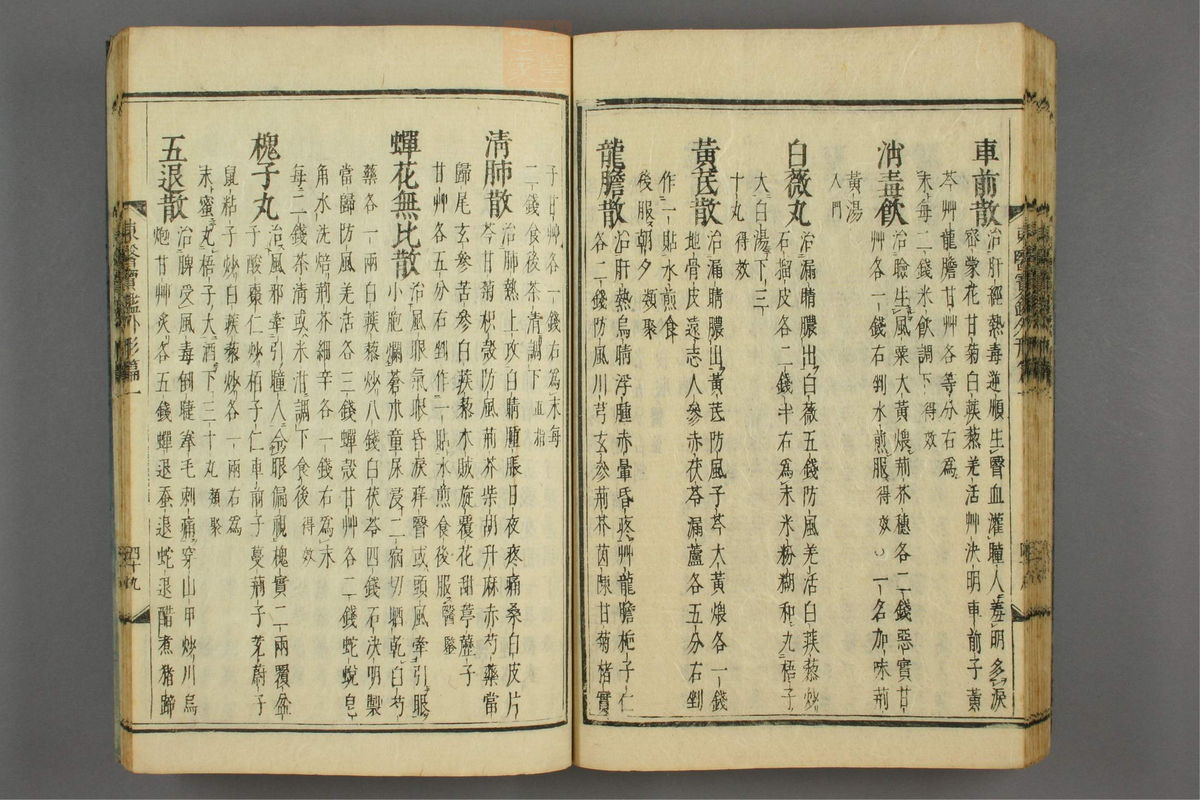 車前散 治肝經熱毒逆順生瞖血灌瞳人羞明多淚
密蒙花甘菊白蒺藜羌活草決明車前子黃
芩草龍膽甘草各等分右爲
末每二錢米飮調下得效
消毒飮 治瞼生風粟大黃煨荊芥穗各二錢惡實甘
草各一錢右剉水煎服得效〇一名加味荊
黃湯
入門
白薇丸 治漏睛膿出白薇五錢防風羌活白蒺藜炒
石榴皮各二錢半右爲末米粉糊和丸梧子
大白湯下三
十丸得效
黃芪散 治漏睛膿出黃芪防風子芩大黃煨各一錢
地骨皮遠志人參赤茯苓漏蘆各五分右剉
作一貼水煎食
後服朝夕類聚
龍膽散 治肝熱烏睛浮腫赤暈昏疼草龍膽梔子仁
各二錢防風川芎玄參荊芥茵陳甘菊楮實
東醫寶鑑外形篇一
子甘草各一錢右爲末每
二錢食後茶淸調下直指
淸肺散 治肺熱上攻白睛腫脹日夜疼痛桑白皮片
芩甘菊枳殼防風荊芥柴胡升麻赤芍藥當
歸尾玄參苦參白蒺藜木賊旋覆花甜葶藶子
甘草各五分右剉作一貼水煎食後服醫鑑
蟬花無比散 治風眼氣眼昏淚痒瞖或頭風牽引眼
小胞爛蒼朮童尿浸二宿切晒乾白芍
藥各一兩白蒺藜炒八錢白茯苓四錢石決明製
當歸防風羌活各三錢蟬殼甘草各二錢蛇蛻皂
角水洗焙荊芥細辛各一錢右爲末
每二錢茶淸或米泔調下食後得效
槐子丸 治風邪牽引瞳人令眼偏視槐實二兩覆盆
子酸棗仁炒栢子仁車前子蔓荊子茺蔚子
鼠粘子炒白蒺藜炒各一兩右爲
末蜜丸梧子大酒下三十丸類聚
五退散 治脾受風毒倒睫拳毛刺痛穿山甲炒川烏
炮甘草灸各五錢蟬退蚕退蛇退醋煮猪蹄
東醫寶鑑外形篇一 四十九